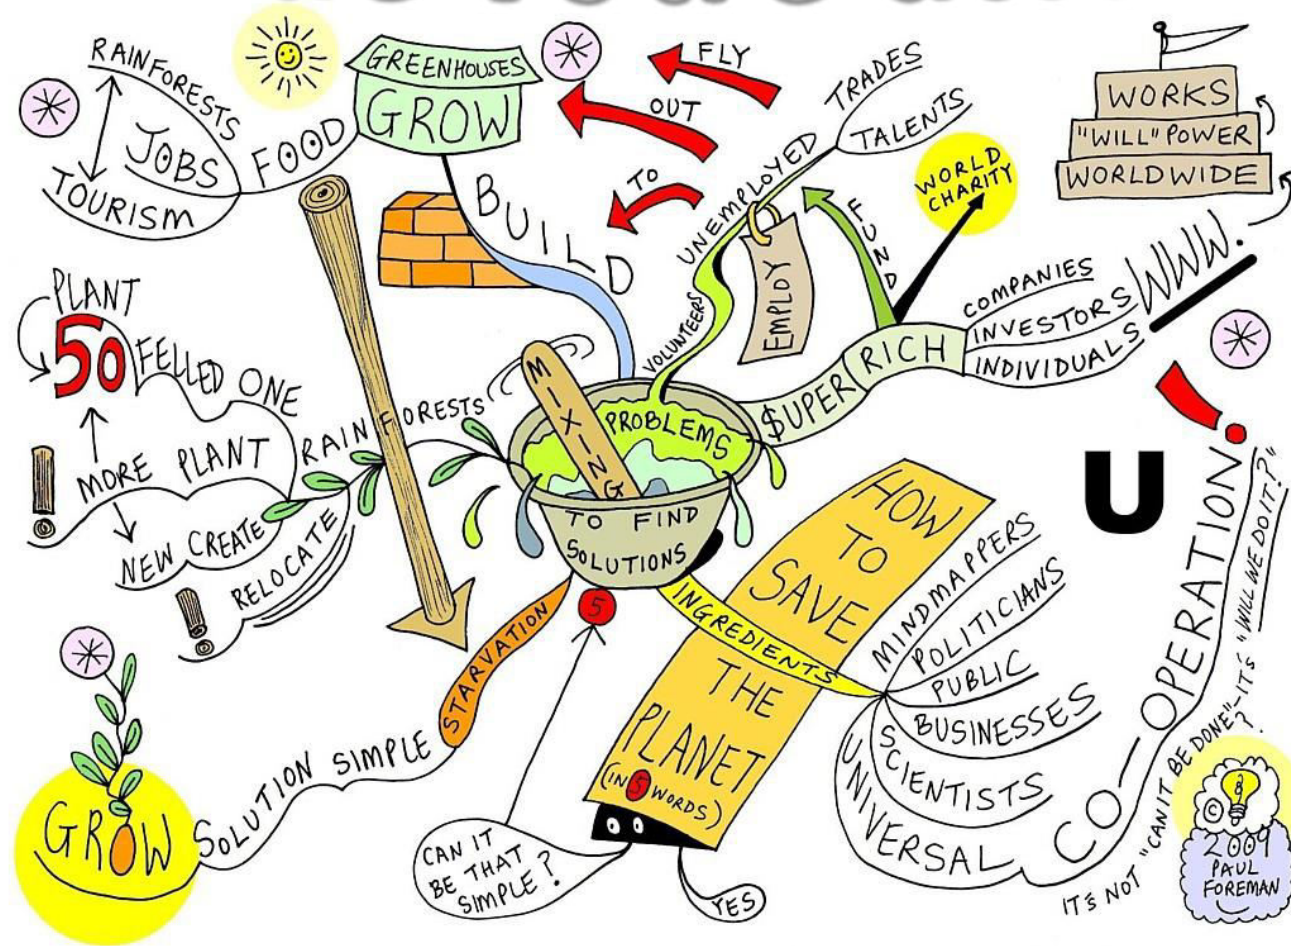 RAINFORESTS
JOBS
TOURISM
FOOD
GREENHOUSES
GROW
BUILD
FLY
OUT
TO
TRADES
TALENTS
UNEMPLOYED
VOLUNTEERS
EMPLOY
FUND
WORLD
CHARITY
WORKS
"WILL" POWER
WORLDWIDE
WWW.
COMPANIES
INVESTORS
INDIVIDUALS
$UPER RICH
PLANT
50
FELLED ONE
MORE PLANT
NEW CREATE
RELOCATE
RAINFORESTS
MIXING
PROBLEMS
TO FIND
SOLUTIONS
5
STARVATION
SOLUTION SIMPLE
GROW
INGREDIENTS
HOW
TO
SAVE
THE
PLANET
(IN 5 WORDS)
CAN IT
BE THAT
SIMPLE?
YES
MINDMAPPERS
POLITICIANS
PUBLIC
BUSINESSES
SCIENTISTS
UNIVERSAL
CO-OPERATION!
U
IT'S NOT "CAN IT BE DONE"-IT'S "WILL WE DO IT?"?
© 2009
PAUL
FOREMAN